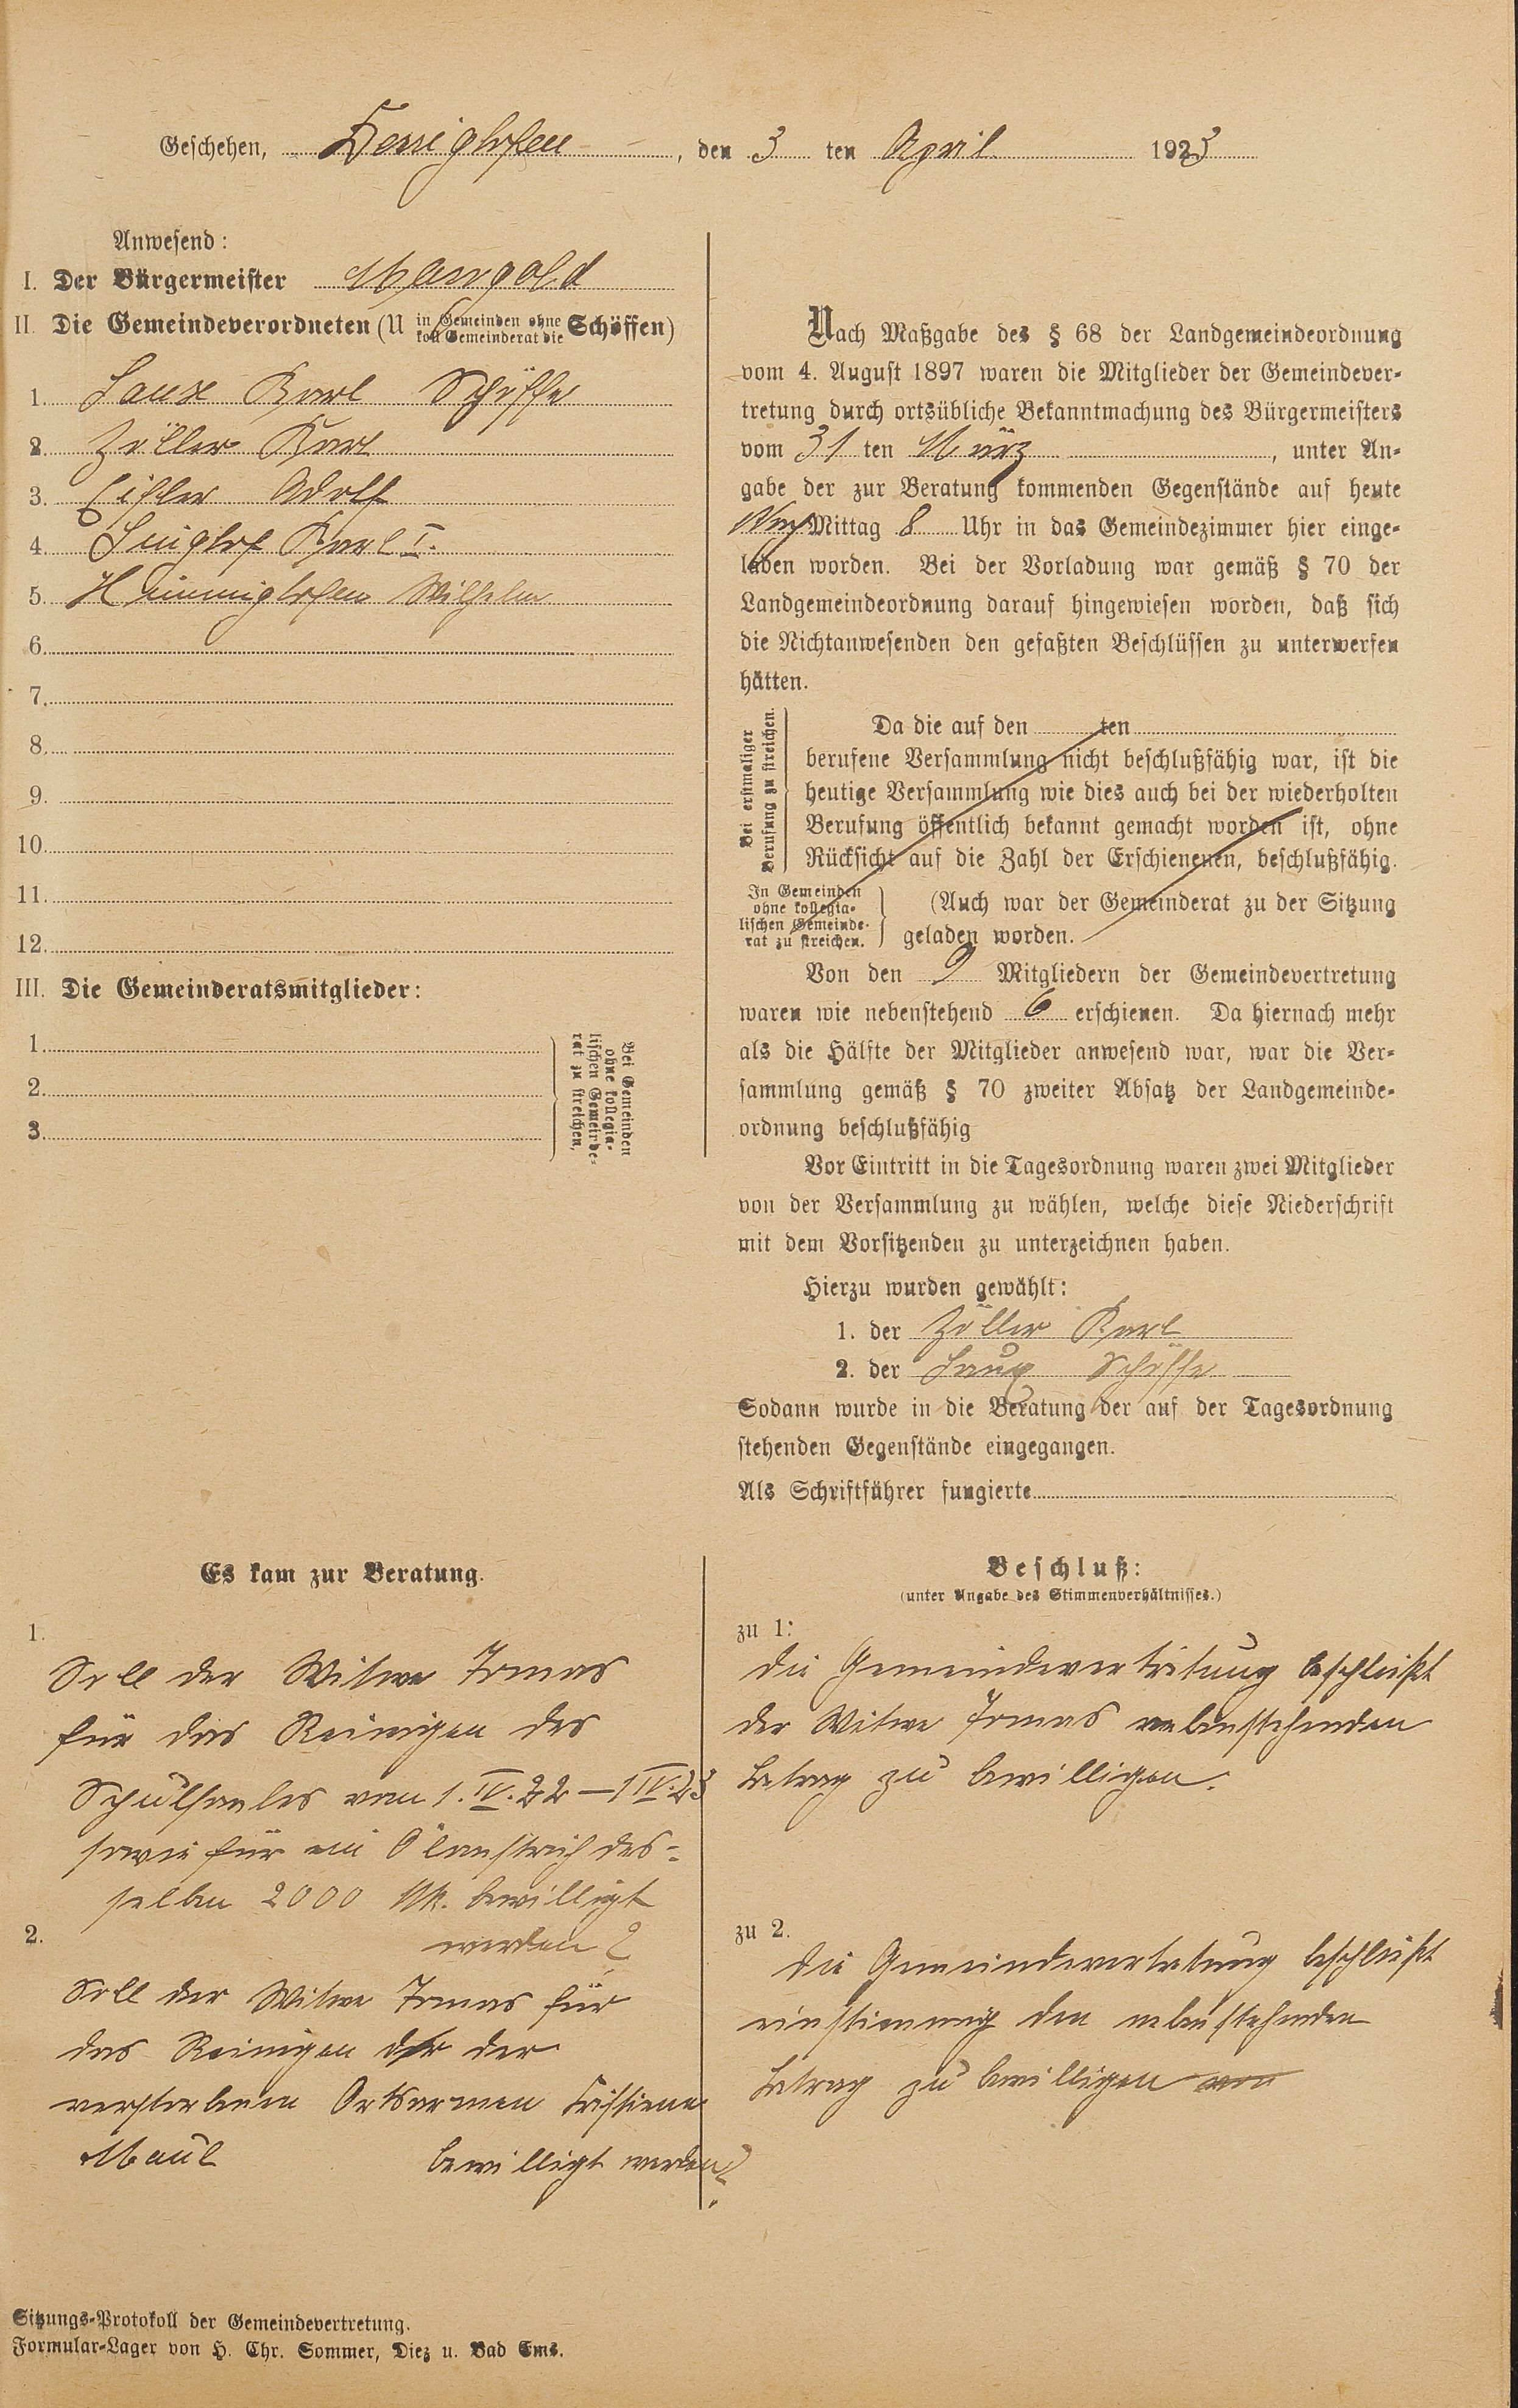 Geschehen, Dessighofen, den 3 ten April 1923
Anwesend:
I. Der Bürgermeister Mangold
II. Die Gemeindeverordneten (U in Gemeinden ohne koll Gemeinderat die Schöffen)
1. Laux Karl Schöffe
2. Zöller Karl
3. Eisler Adolf
4. Linghof Karl I.
5. Hinnighofen Wilhelm
6.
7.
8.
9.
10.
11.
12.
III. Die Gemeinderatsmitglieder:
1.
2.
3.
Bei Gemeinden
ohne kollegia-
lischen Gemeinde-
rat zu streichen.
Nach Maßgabe des § 68 der Landgemeindeordnung
vom 4. August 1897 waren die Mitglieder der Gemeindever-
tretung durch ortsübliche Bekanntmachung des Bürgermeisters
vom 31 ten März, unter An-
gabe der zur Beratung kommenden Gegenstände auf heute
Nach Mittag 8 Uhr in das Gemeindezimmer hier einge-
laden worden. Bei der Vorladung war gemäß § 70 der
Landgemeindeordnung darauf hingewiesen worden, daß sich
die Nichtanwesenden den gefaßten Beschlüssen zu unterwerfen
hätten.
Bei erstmaliger
Berufung zu streichen.
Da die auf den ten
berufene Versammlung nicht beschlußfähig war, ist die
heutige Versammlung wie dies auch bei der wiederholten
Berufung öffentlich bekannt gemacht worden ist, ohne
Rücksicht auf die Zahl der Erschienenen, beschlußfähig.
In Gemeinden
ohne kollegia-
lischen Gemeinde-
rat zu streichen.
(Auch war der Gemeinderat zu der Sitzung
geladen worden.
Von den 9 Mitgliedern der Gemeindevertretung
waren wie nebenstehend 6 erschienen. Da hiernach mehr
als die Hälfte der Mitglieder anwesend war, war die Ver-
sammlung gemäß § 70 zweiter Absatz der Landgemeinde-
ordnung beschlußfähig
Vor Eintritt in die Tagesordnung waren zwei Mitglieder
von der Versammlung zu wählen, welche diese Niederschrift
mit dem Vorsitzenden zu unterzeichnen haben.
Hierzu wurden gewählt:
1. der Zöller Karl
2. der Laux Schöffe
Sodann wurde in die Beratung der auf der Tagesordnung
stehenden Gegenstände eingegangen.
Als Schriftführer fungierte
Es kam zur Beratung.
1.
Soll der Witwe Tomas
für das Reinigen des
Schulsaales vom 1.IV.22 – 1 IV.23
sowie für ein Ölanstrich des=
selben 2000 Mk. bewilligt
werden?
2.
Soll der Witwe Tomas für
das Reinigen der der
verstorbenen Ortsarmen
Maul bewilligt werden?
Beschluß:
(unter Angabe des Stimmenverhältnisses.)
zu 1:
Die Gemeindevertretung beschließt
der Witwe Tomas nebenstehenden
Betrag zu bewilligen.
zu 2.
Die Gemeindevertretung beschließt
einstimmig den nebenstehenden
Betrag zu bewilligen von
Sitzungs-Protokoll der Gemeindevertretung.
Formular-Lager von H. Chr. Sommer, Diez u. Bad Ems.